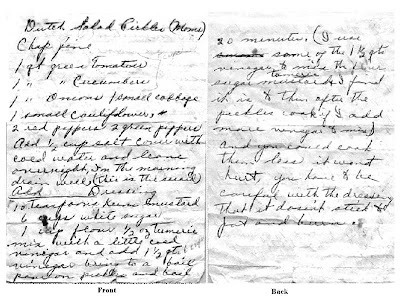 Dutch Salad Pickles (Moms)
Chop fine
1 qt green tomatoes
1 " " Cucumbers
1 " Onions 1 small cabbage
1 small Cauliflower
2 red peppers 2 green peppers
Add 1/2 cup salt cover with
cold water and leave
overnight. In the morning
drain well. (this is the
Add Dressing
10 teaspoons mustard
6 " white sugar
1 cup flour 1/2 oz tumeric
mix with a little cold
vinegar and add 1 1/2 qts
vinegar bring to a boil
pour on pickles and boil
Front
20 minutes. (I use
some of the 1 1/2 qts
vinegar to mix the flour
sugar mustard & tumeric
it is & then after the
pickles cook I add
more vinegar & mix)
and you could cook
them less it wont
hurt, you have to be
careful with the dressing
that it doesn't stick to
pot and burn.
Back